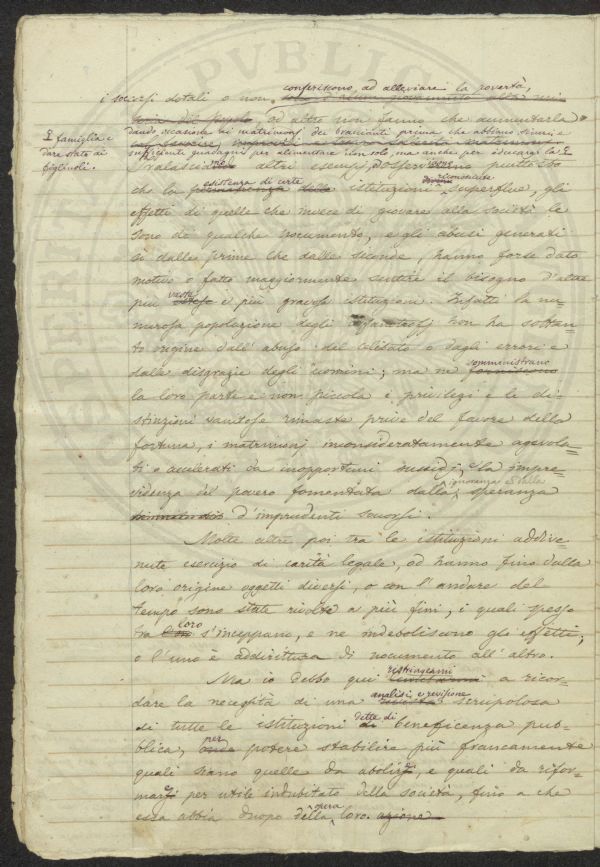 conferiscono, ad alleviare la povertà,
i soccorsi dotali o non
ad altro non fanno che aumentarla
dando occasione ai matrimonj dei braccianti prima che abbiano sicuri e
sufficienti guadagni per alimentare non solo, ma anche per educare la
famiglia e
dare stato ai
figliuoli.
altri esempj, piuttosto
che la esistenza di certe istituzioni riconosciute superflue, gli
effetti di quelle che invece di giovare alla società le
sono di qualche nocumento, e gli abusi generati
sì dalle prime che dalle seconde, hanno forse dato
motivo o fatto maggiormente sentire il bisogno d'altre
più vaste e più gravose istituzioni. Infatti la nu=
merosa popolazione degli non ha soltan=
to origine dall'abuso del celibato o dagli errori e
dalle disgrazie degli uomini; ma ne somministrano
la loro parte e non piccola i privilegi e le di=
stinzioni vanitose rimaste prive del favore della
fortuna, i matrimonj inconsideratamente agevola=
ti o accelerati da inopportuni sussidj, e la impre=
videnza del povero fomentata dalla ignoranza e dalla speranza
d'imprudenti soccorsi.
Molte altre poi tra le istituzioni addive=
nute esercizio di carità legale, od hanno fino dalla
loro origine oggetti diversi, o con l'andare del
tempo sono state rivolte a più fini, i quali spesso
tra loro s'inceppano, e ne indeboliscono gli effetti;
o l'uno è addirittura di nocumento all'altro.
Ma io debbo qui ristringermi a ricor=
dare la necessità di una analisi e revisione scrupolosa
di tutte le istituzioni dette di beneficenza pub=
blica, per potere stabilire più francamente
quali siano quelle da abolirsi, e quali da rifor=
marsi per utile indubitato della società, fino a che
essa abbia duopo della loro opera.